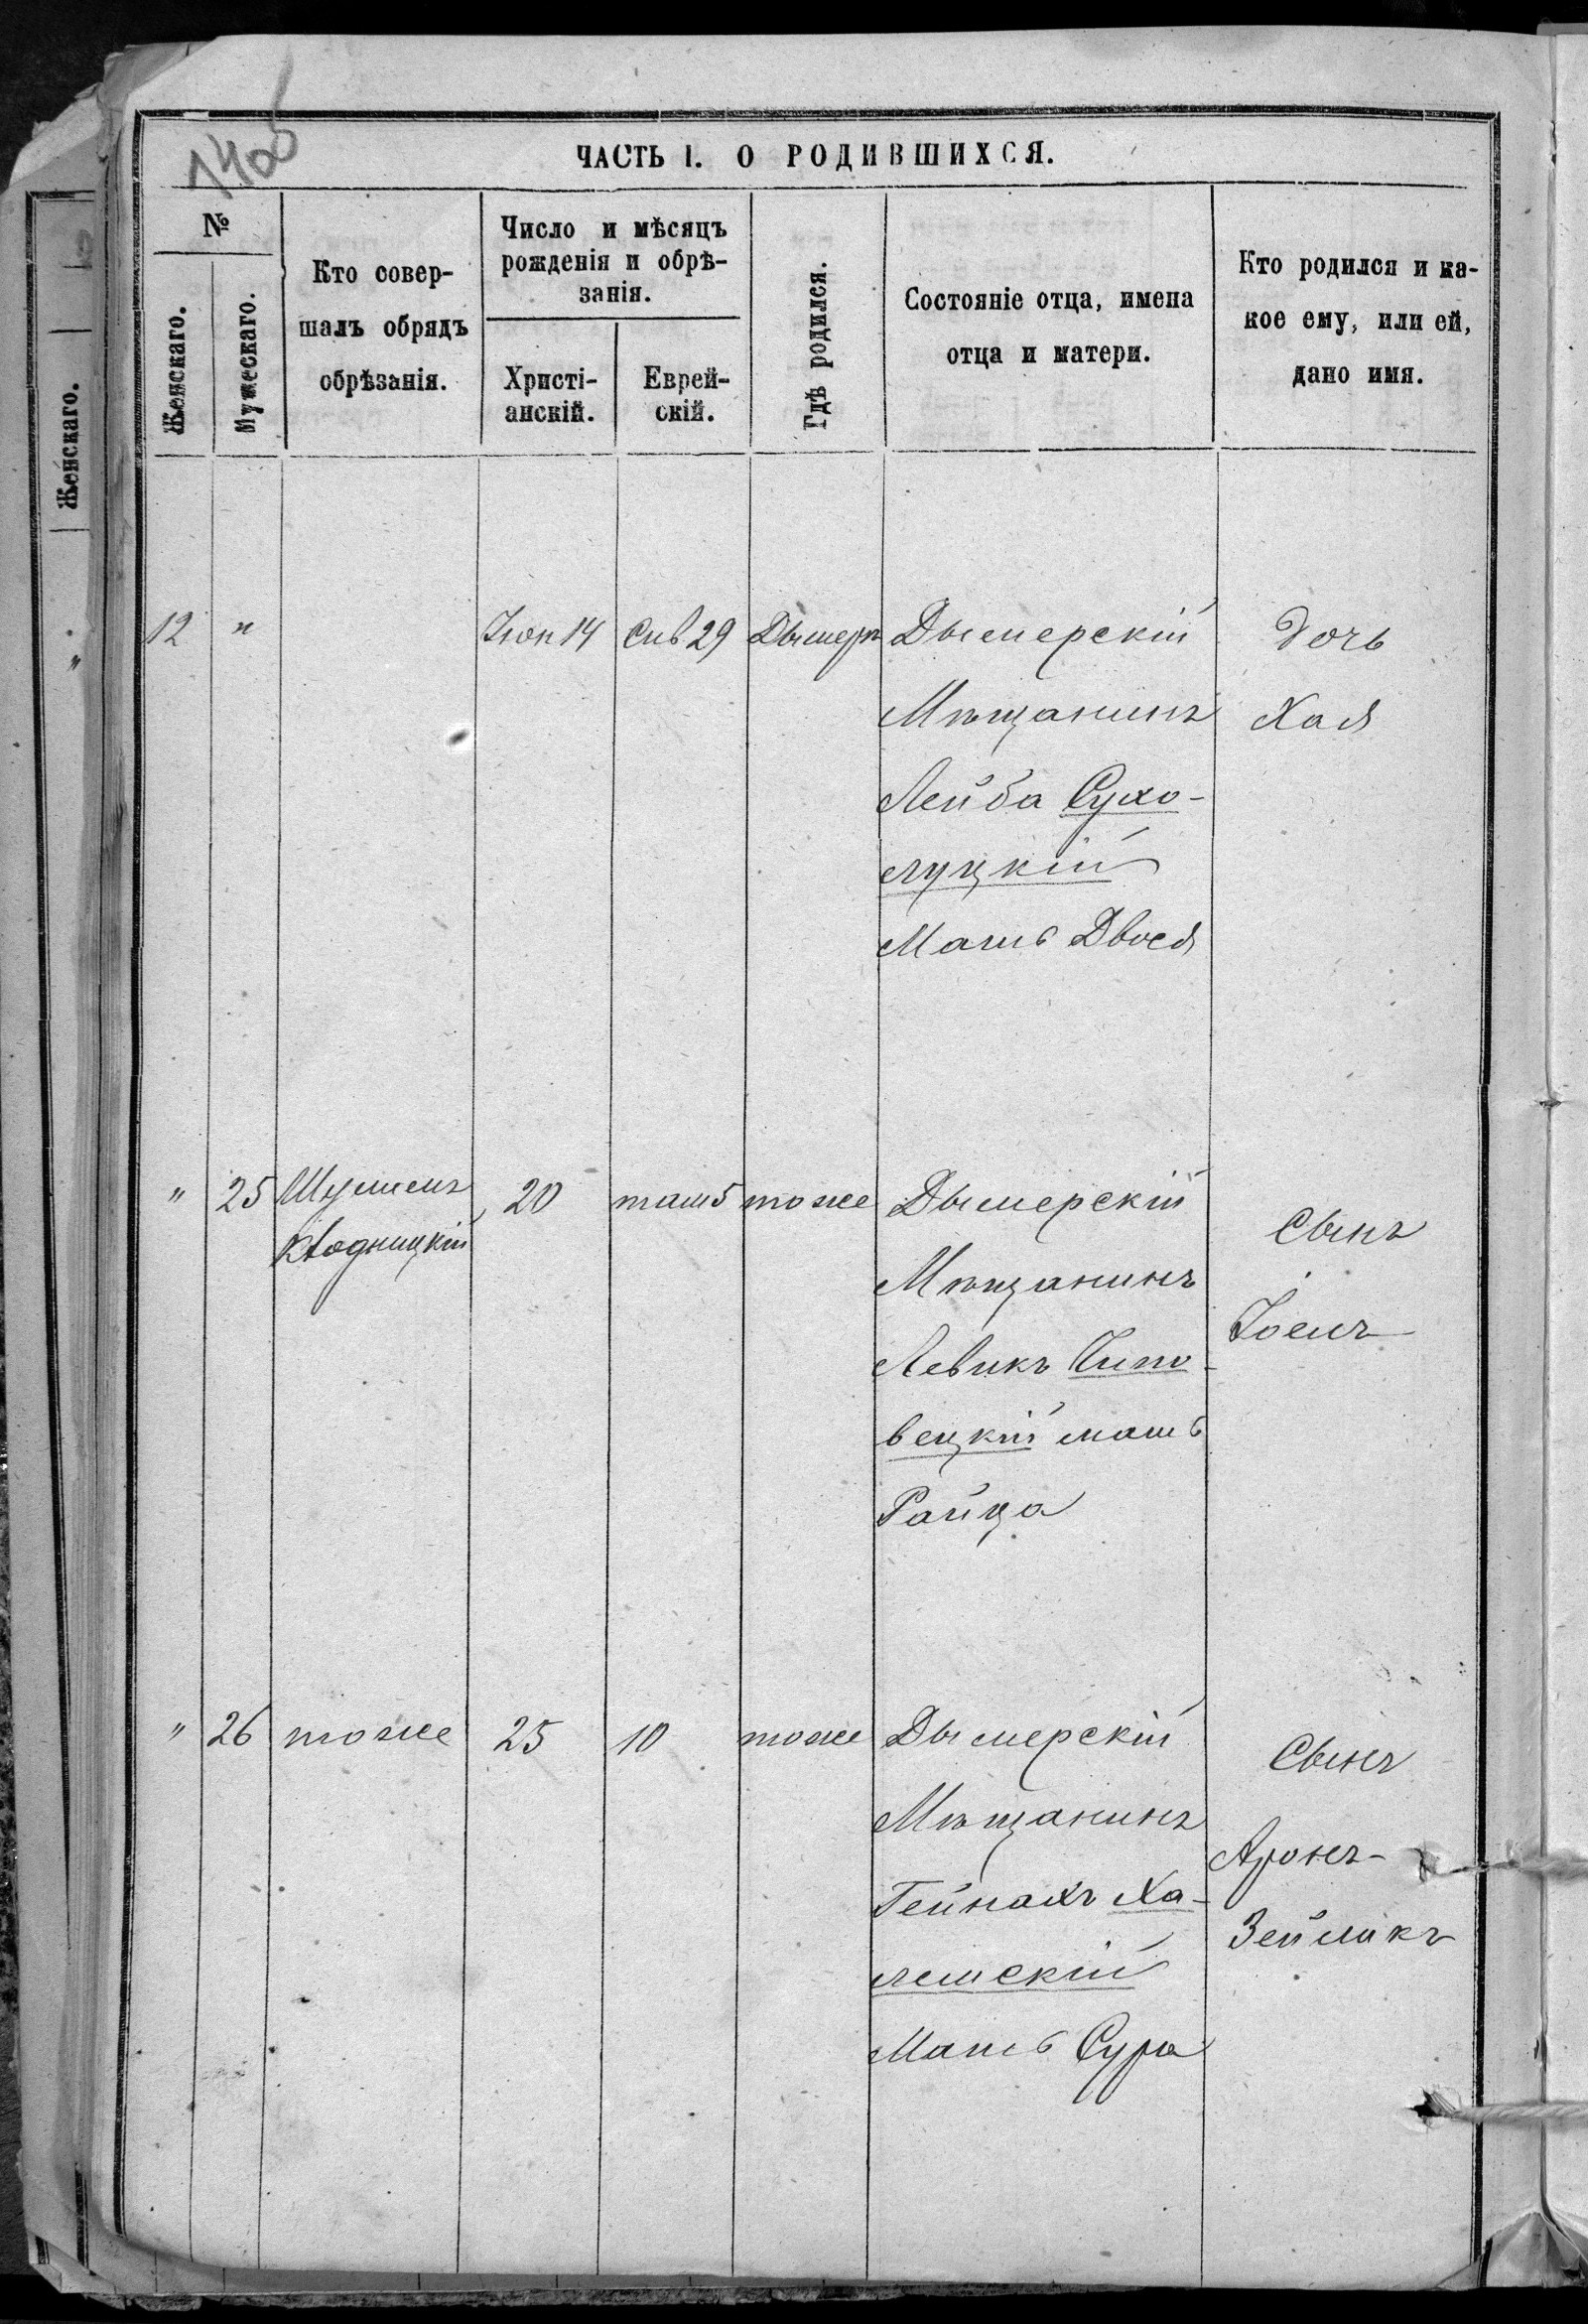 1406
ЧАСТЬ I. О РОДИВШИХСЯ.
№
Женскаго.
Мужескаго.
Кто совер-
шалъ обрядъ
обрѣзанія.
Число и мѣсяцъ
рожденія и обрѣ-
занія.
Христі-
анскій.
Еврей-
скій.
Гдѣ родился.
Состояніе отца, имена
отца и матери.
Кто родился и ка-
кое ему, или ей,
дано имя.
Женскаго.
12 " Іюн 14 Сив 29 Дымеръ
Дымерскій
Мѣщанинъ
Лейба Сухо-
луцкій
Мать Двося
дочь
Хая
" 25 Шулимъ
20 там 5 тоже
Дымерскій
Мѣщанинъ
Левикъ
вецкій мать
Райца
Сынъ
Іоель
" 26 тоже 25 10 тоже
Дымерскій
Мѣщанинъ
Гейнахъ Ха-
лемскій
Мать Сура
Сынъ
Аронъ-
Зейликъ